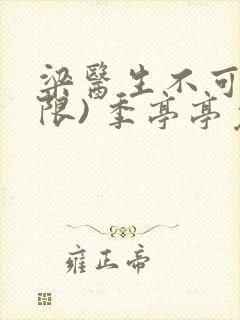 梁醫生不可
限)季亭亭
雍正帝